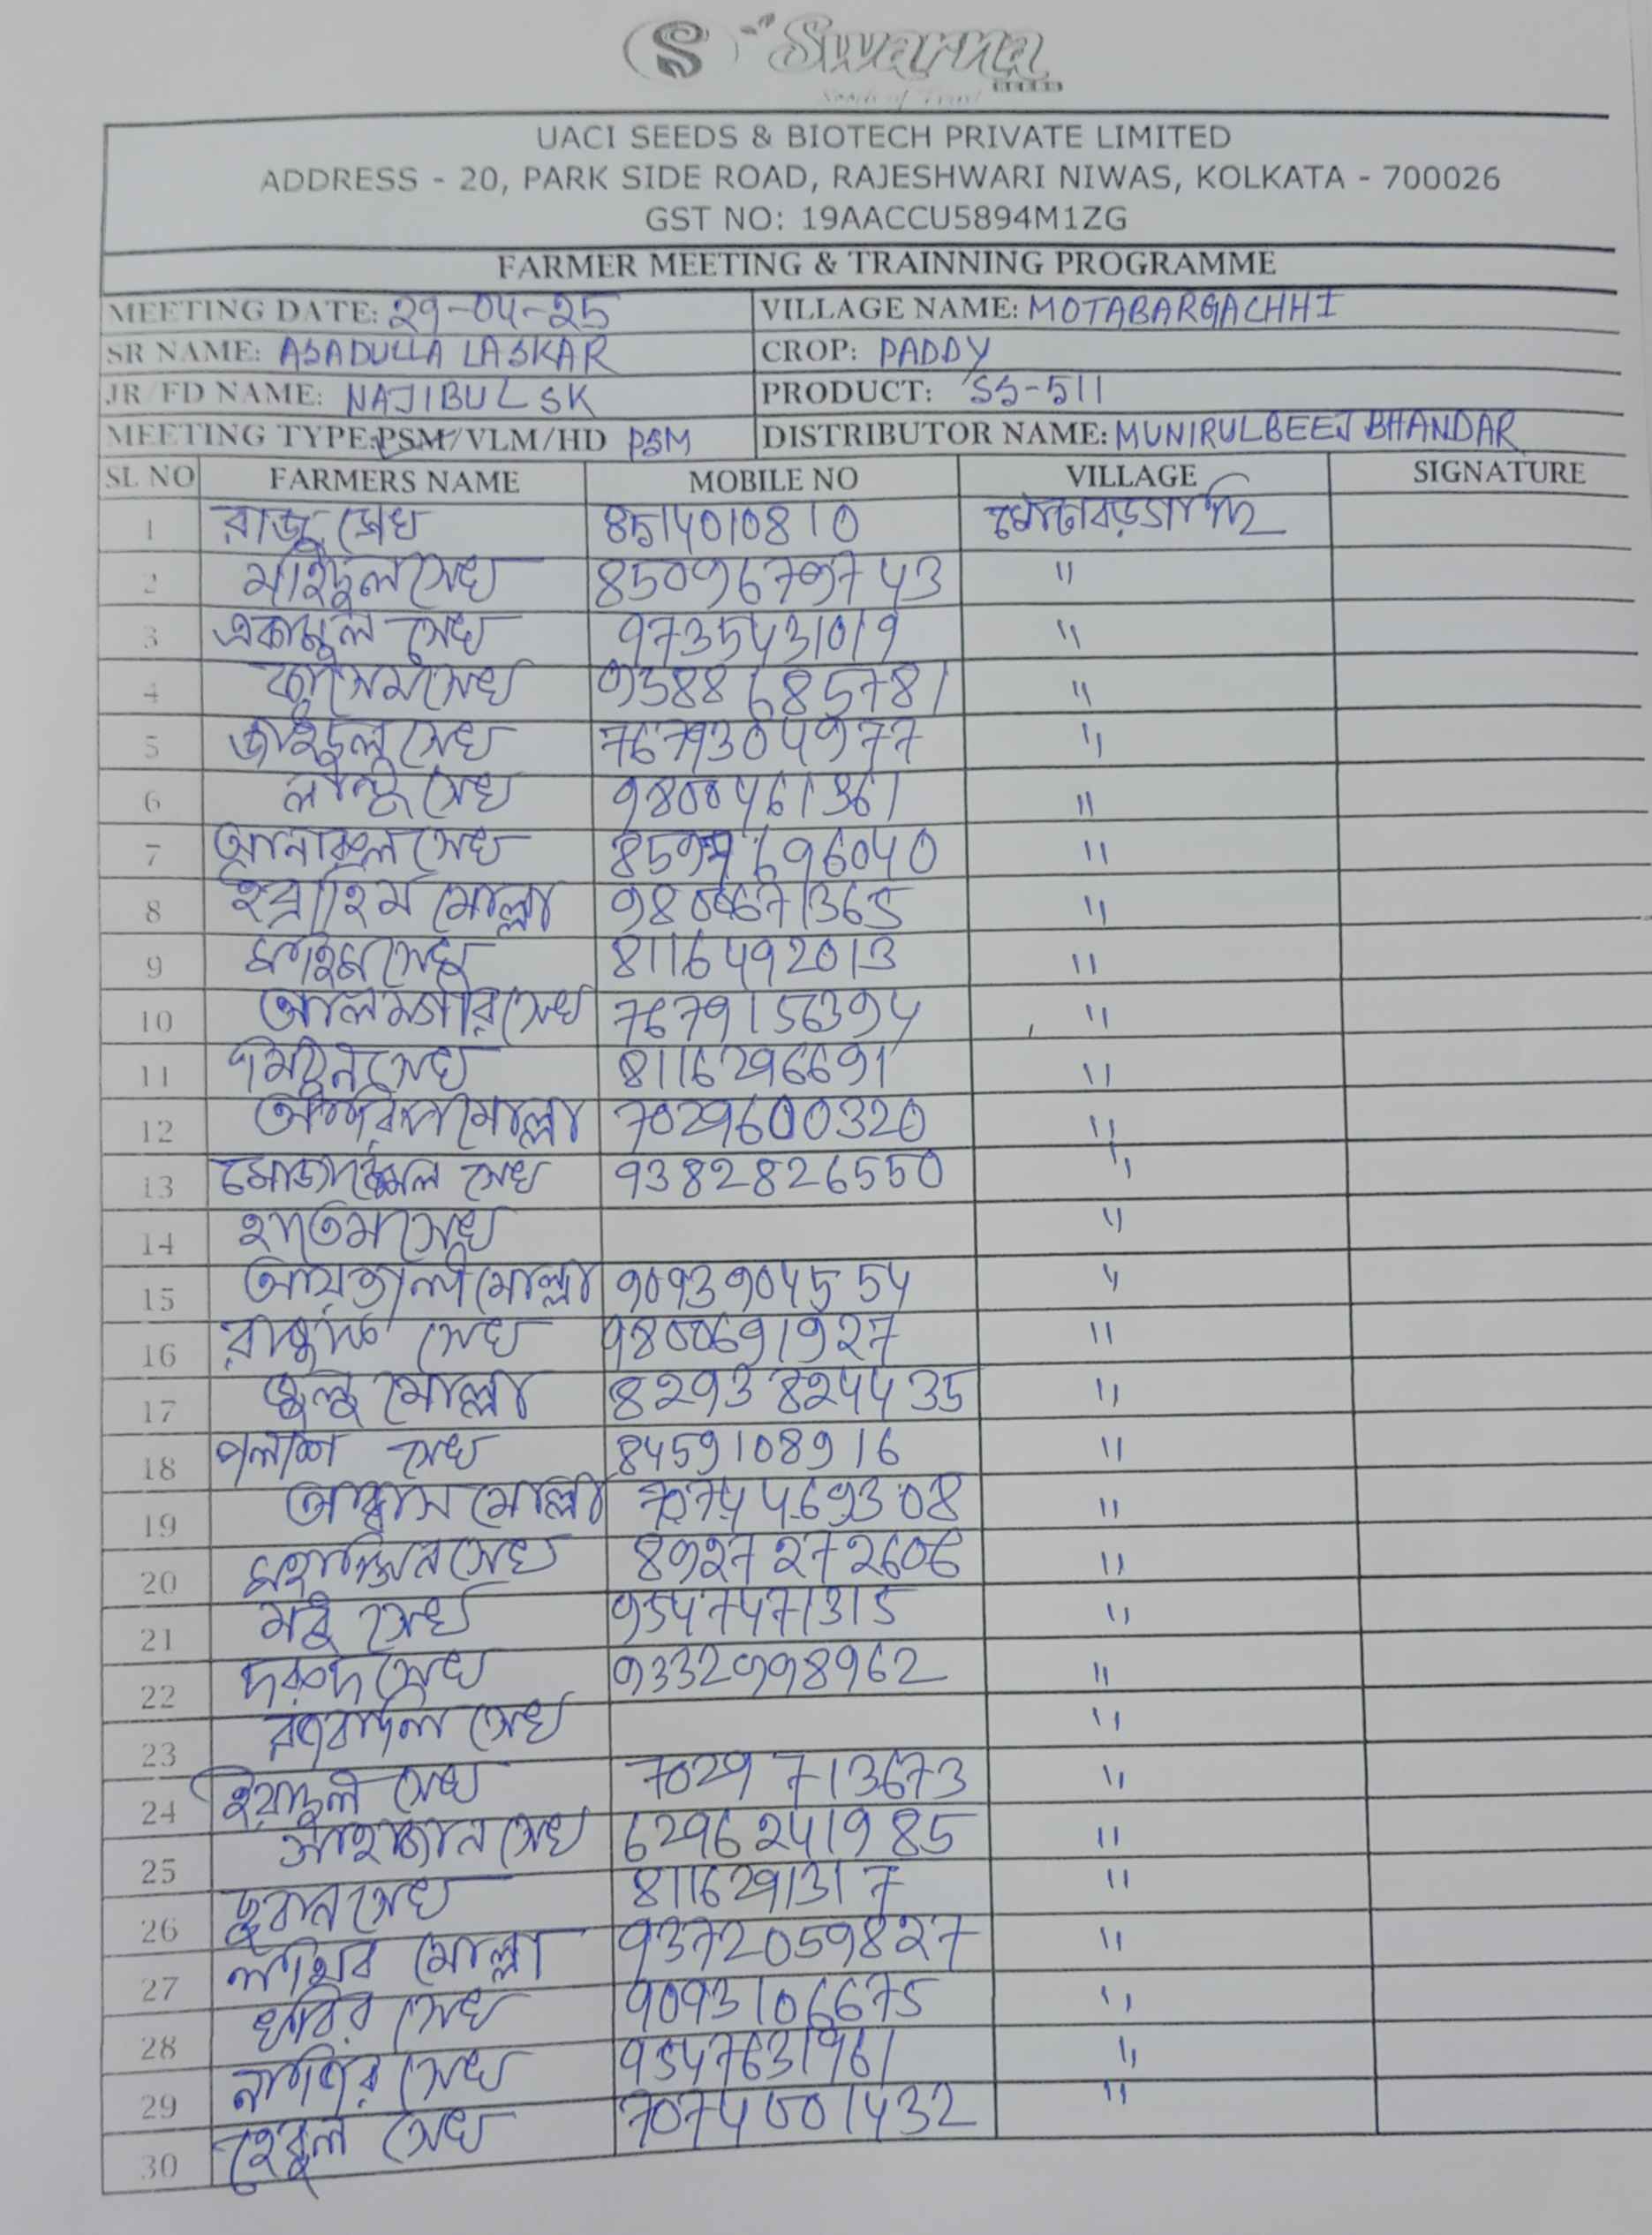 S Swarna
SEEDS
Seeds of Trust
UACI SEEDS & BIOTECH PRIVATE LIMITED
ADDRESS - 20, PARK SIDE ROAD, RAJESHWARI NIWAS, KOLKATA - 700026
GST NO: 19AACCU5894M1ZG
FARMER MEETING & TRAINNING PROGRAMME
MEETING DATE: 29-04-25 VILLAGE NAME: MOTABARGACHHI
SR NAME: ASADULLA LASKAR CROP: PADDY
JR/FD NAME: NAJIBUL SK PRODUCT: SS-511
MEETING TYPE:PSM/VLM/HD PSM DISTRIBUTOR NAME: MUNIRULBEEJ BHANDAR
SL NO FARMERS NAME MOBILE NO VILLAGE SIGNATURE
1 রাজু সেখ 8514010810 মোটাবড়গাছি
2 মাইদুল সেখ 8509679743 "
3 একামুল সেখ 9735431019 "
4 কাসেম সেখ 9388685781 "
5 জাইদুল সেখ 7679304977 "
6 লাল্টু সেখ 9800461361 "
7 আনারুল সেখ 696040 "
8 ইব্রাহিম মোল্লা 9800671365 "
9 সেখ 8116492013 "
10 আলমগীর সেখ 7679156394 "
11 সেখ 8116296691 "
12 মোল্লা 7029600320 "
13 মোজাম্মেল সেখ 9382826550 "
14 হাতেম সেখ "
15 মোল্লা 9093904554 "
16 সেখ 9800691927 "
17 মোল্লা 8293824435 "
18 পলাশ সেখ 8459108916 "
19 আব্বাস মোল্লা 7074469308 "
20 সেখ 8927272606 "
21 সেখ 9547471315 "
22 সেখ 9332998962 "
23 সেখ "
24 সেখ 7029713673 "
25 সেখ 6296241985 "
26 সেখ 8116291317 "
27 মোল্লা 9372059827 "
28 সেখ 9093106675 "
29 সেখ 9547631961 "
30 সেখ 7074001432 "